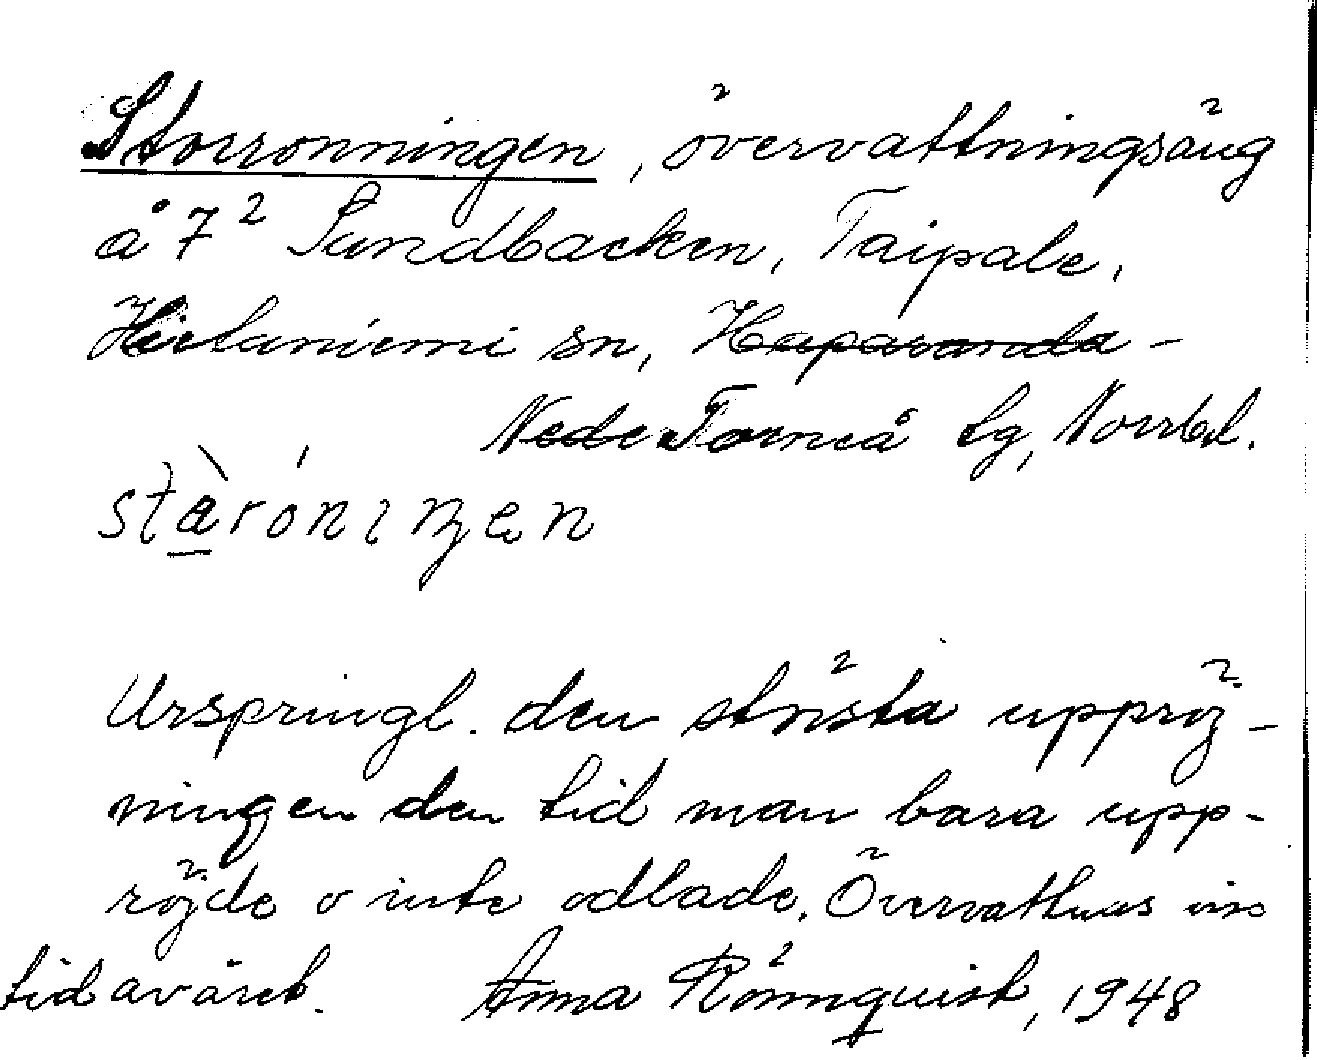 Storronningen, övervattningsäng
å 7² Sundbacken, Taipale,
Hietaniemi sn, Haparanda-
Neder Torneå tg, Norrbl.
stàróniŋen
Urspringl. den största uppröj-
ningen den tid man bara upp-
röjde o inte odlade. Övervattnas viss
tid av året. Anna Rönnquist, 1948